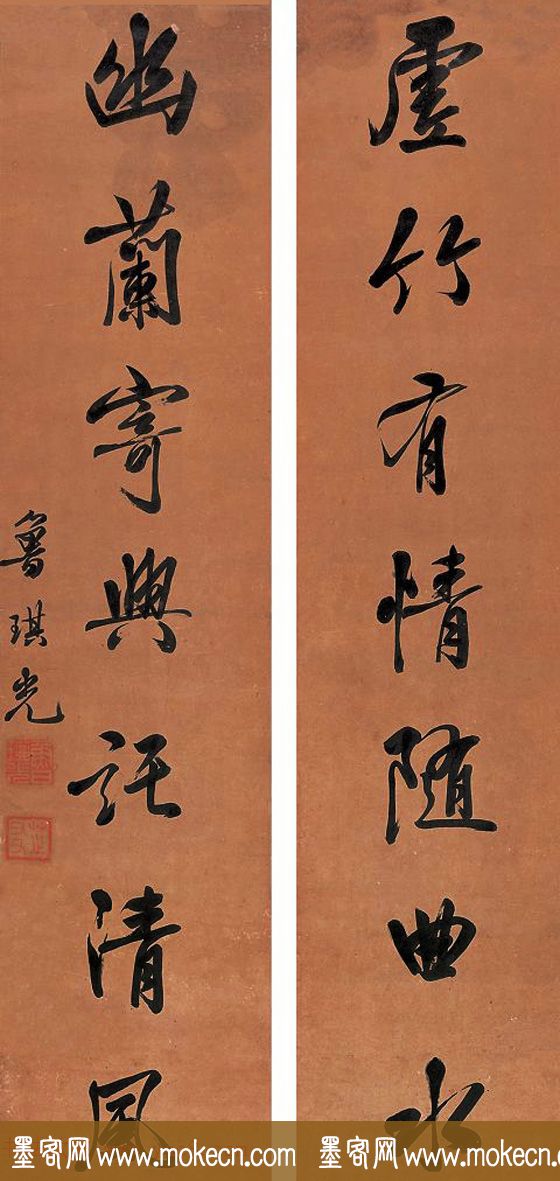 虛竹有情随曲水
幽蘭寄興託清風
魯琪光
墨客网 www.mokecn.com
墨客网 www.mokecn.com